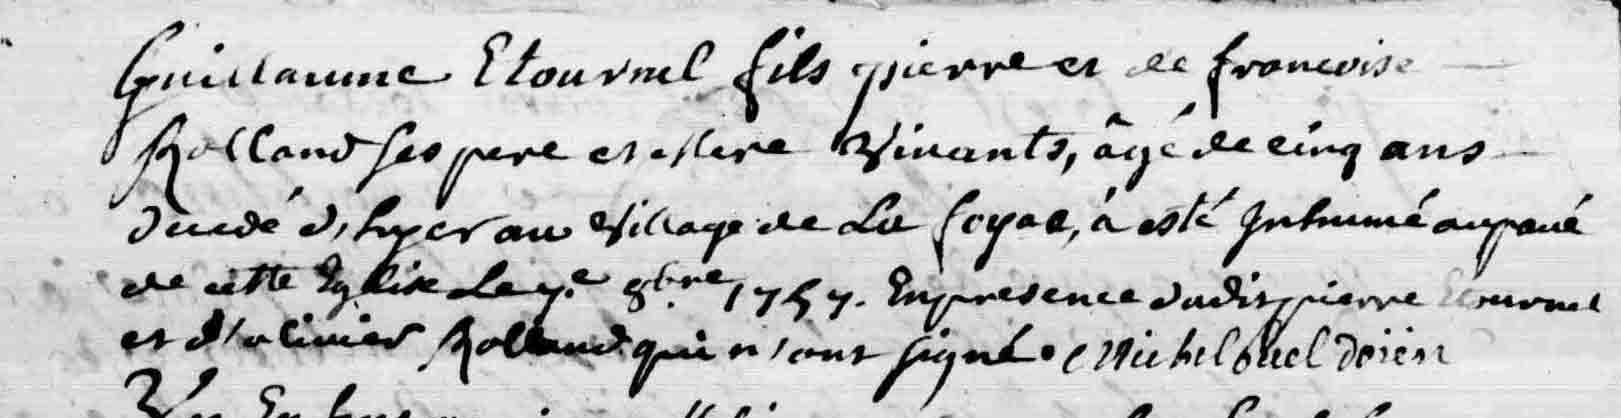 Guillaume Etournel fils pierre et de francoise
Rolland ses pere et Mere Vivants, âgé de cinq ans
decedé d'hyer au Village de La foyae, à esté Inhumé au pavé
de cette Eglise Le 7.e 8bre 1757. En presence dudit pierre Etournel
et d'olivier Rolland qui n'ont signé. Michel buel doïen